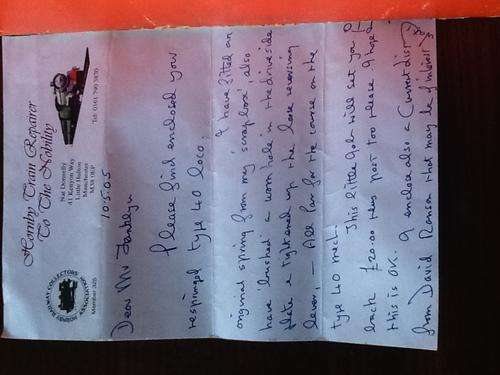 Hornby Train Repairer
To The Nobility
HORNBY RAILWAY COLLECTORS' ASSOCIATION
Member 305
Nat Donnelly
41 Kenyon Way
Little Hulton
Manchester
M38
Tel: 0161 790 3870
10.5.05
Dear Mr
Please find enclosed your
resprung type 40 loco.
I have fitted an
original spring from my 'scrap box' also
have bushed a worn hole in the drive side
plate & tightened up the loose reversing
lever, — All par for the course on the
type 40 mech.
This little job will set you
back £20.00 plus post too please I hope
this is OK.
I enclose also a Current dist
from David Ronson that may be of interest